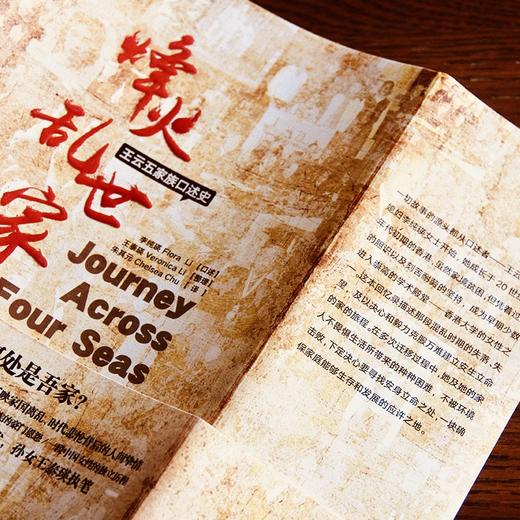 烽火
乱世
家
王云五家族口述史
李纯瑛 Flora Li【口述】
王泰瑛 Veronica Li【整理】
朱其元 Chelsea Chu【译】
Journey
Across
Four Seas
处是吾家?
孙女王泰瑛执笔
一切故事的源头都从口述者——王云五
媳妇李纯瑛女士开始,她成长于20世
年代初期的香港,虽然家境贫困,但凭着过
的胆识以及刻苦耐劳的坚持,成为早期少数
进入崇高的学术殿堂——香港大学的女性之
这本回忆录描述那段混乱时期的失亲、失
望,及以决心和毅力克服万难建立安生立命
的家的旅程。在多次迁移过程中,她及她的家
人不畏惧生活所带来的种种困难,不被环境
击败,下定决心要寻找安身立命之处,一块确
保家庭能够生存和发展的应许之地。